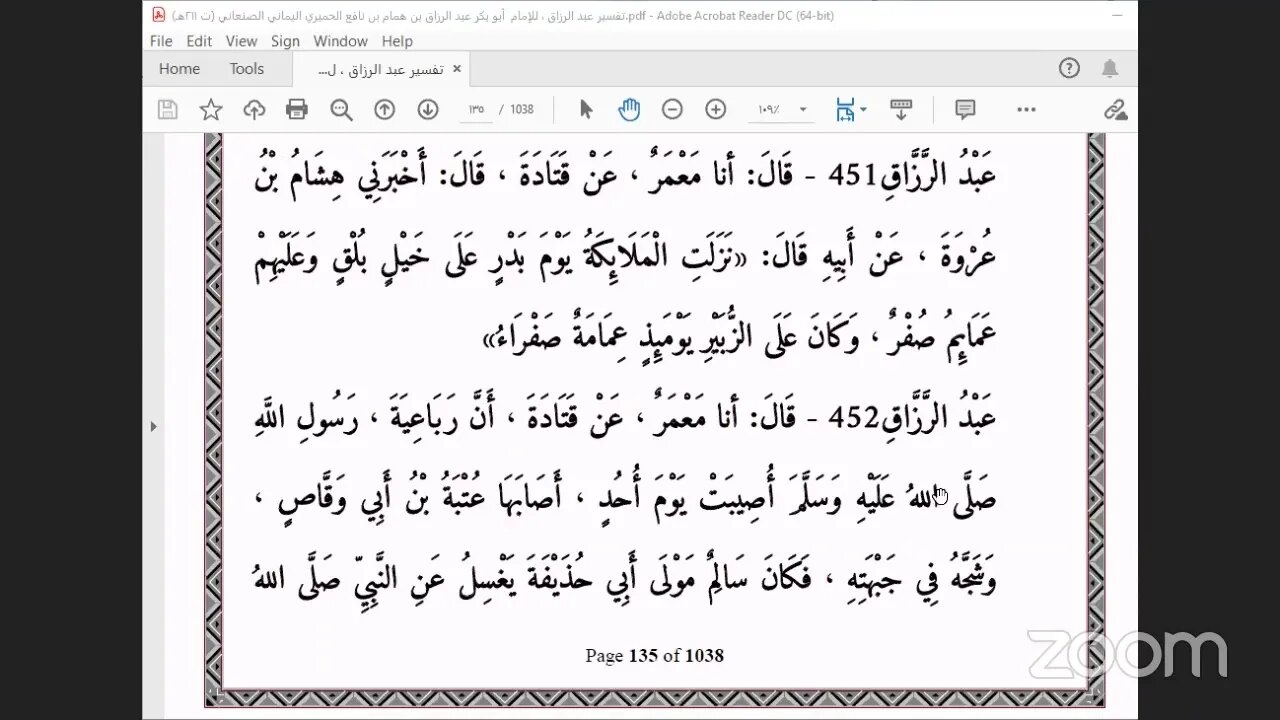 تفسير عبد الرزاق ، للإمام أبو بكر عبد الرزاق بن همام بن نافع الحميري اليماني الصنعاني (ت ٢١١هـ).pdf - Adobe Acrobat Reader DC (64-bit)
File Edit View Sign Window Help
Home Tools تفسير عبد الرزاق ، ل...
١٣٥ / 1038 ١٠٩٪
عَبْدُ الرَّزَّاقِ451 - قَالَ: أنا مَعْمَرٌ ، عَنْ قَتَادَةَ ، قَالَ: أَخْبَرَنِي هِشَامُ بْنُ
عُرْوَةَ ، عَنْ أَبِيهِ قَالَ: «نَزَلَتِ الْمَلَائِكَةُ يَوْمَ بَدْرٍ عَلَى خَيْلٍ بُلْقٍ وَعَلَيْهِمْ
عَمَائِمُ صُفْرٌ ، وَكَانَ عَلَى الزُّبَيْرِ يَوْمَئِذٍ عِمَامَةٌ صَفْرَاءُ»
عَبْدُ الرَّزَّاقِ452 - قَالَ: أنا مَعْمَرٌ ، عَنْ قَتَادَةَ ، أَنَّ رَبَاعِيَةَ ، رَسُولِ اللَّهِ
صَلَّى اللهُ عَلَيْهِ وَسَلَّمَ أُصِيبَتْ يَوْمَ أُحُدٍ ، أَصَابَهَا عُتْبَةُ بْنُ أَبِي وَقَّاصٍ ،
وَشَجَّهُ فِي جَبْهَتِهِ ، فَكَانَ سَالِمٌ مَوْلَى أَبِي حُذَيْفَةَ يَغْسِلُ عَنِ النَّبِيِّ صَلَّى اللهُ
Page 135 of 1038
zoom